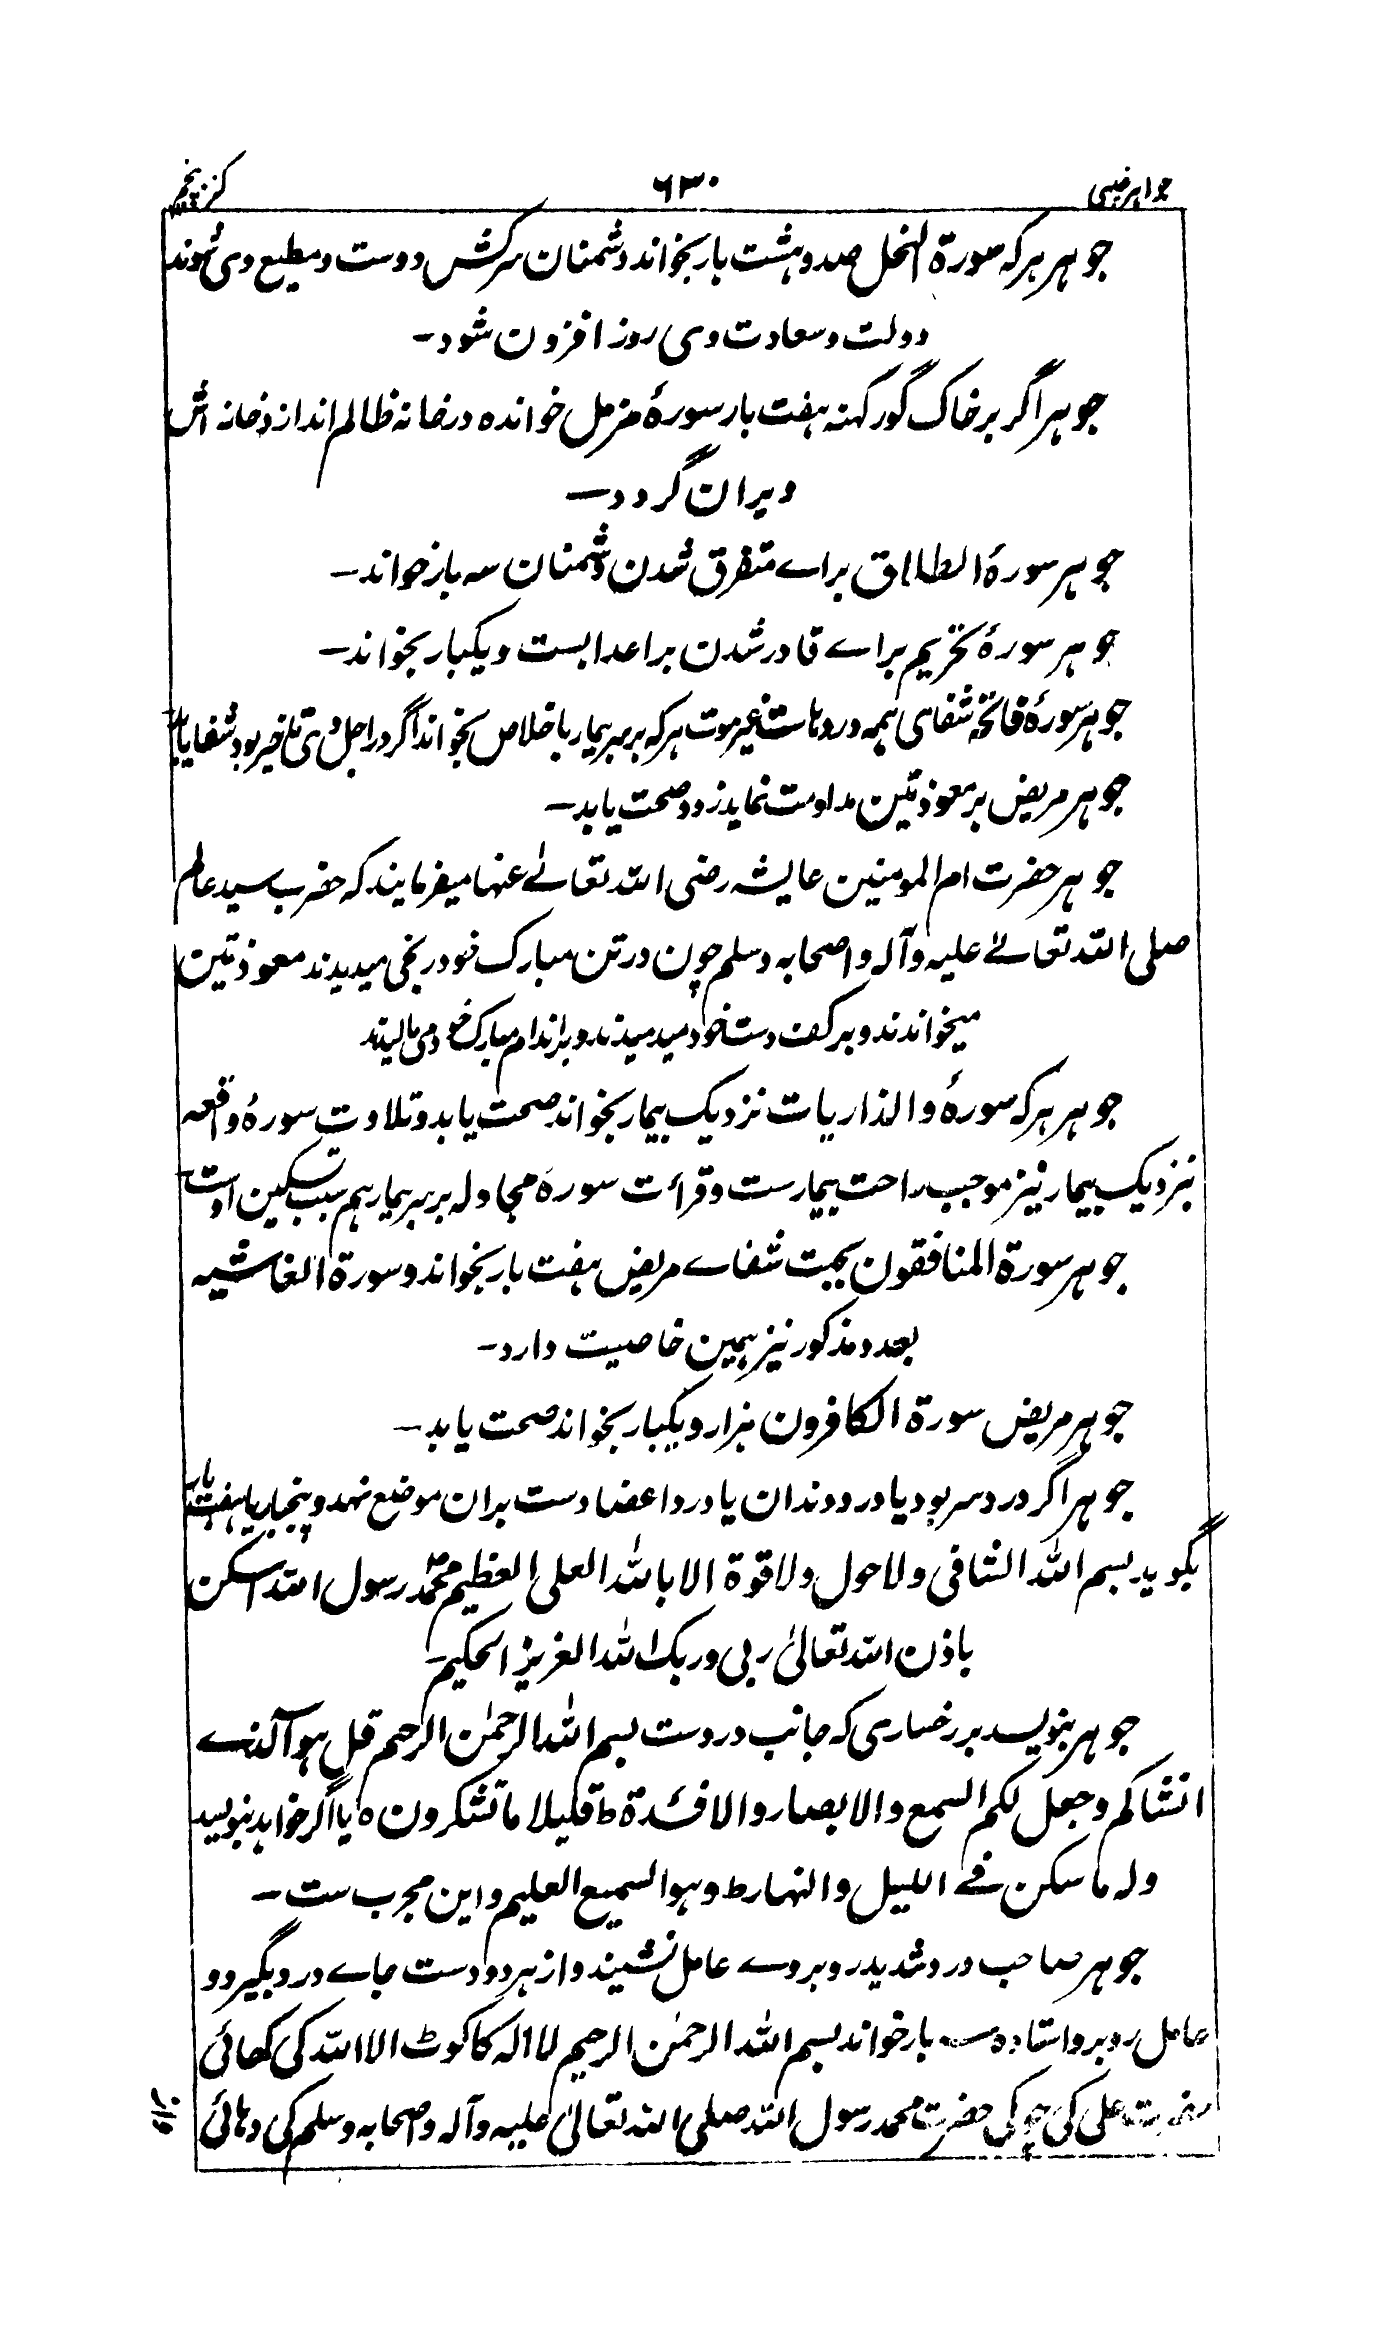 جواہر غیبی
۶۳۰
کنز پنجم
جوہر ہر کہ سورۃ النحل صد و ہشت بار بخواند دشمنان سرکش دوست و مطیع وی شوند
دولت و سعادت وی روز افزون شود۔
جوہر اگر بر خاک گور کہنہ ہفت بار سورۂ مزمل خواندہ در خانہ ظالم اندازد خانہ اش
ویران گردد۔
جوہر سورۂ الطلاق براے متفرق شدن دشمنان سہ بار خواند۔
جوہر سورۂ تحریم براے قادر شدن بر اعدا بست و یکبار بخواند۔
جوہر سورۂ فاتحہ شفای ہمہ دردہاست غیر موت ہر کہ بر سر بیمار باخلاص بخواند اگر در اجل وی تاخیر بود شفا یابد
جوہر مریض بر معوذتین مداومت نماید زود صحت یابد۔
جوہر حضرت ام المومنین عایشہ رضی اللہ تعالے عنہا میفرمایند کہ حضرت سید عالم
صلی اللہ تعالے علیہ وآلہ و اصحابہ وسلم چون در تن مبارک خود رنجی میدیدند معوذتین
میخواندند و بر کف دست خود میدمیدند و بر اندام مبارک خود می مالیدند
جوہر ہر کہ سورۂ والذاریات نزدیک بیمار بخواند صحت یابد و تلاوت سورۂ واقعہ
نزدیک بیمار نیز موجب راحت بیمارست و قرأت سورہ مجادلہ بر سر بیمار ہم سبب تسکین اوست
جوہر سورۃ المنافقون بجہت شفاے مریض ہفت بار بخواند و سورۃ الغاشیہ
بعدد مذکور نیز ہمین خاصیت دارد۔
جوہر مریض سورۃ الکافرون ہزار و یکبار بخواند صحت یابد۔
جوہر اگر درد سر بود یا درد دندان یا درد اعضا دست بران موضع نہد و پنجبار یا ہفت بار
بگوید بسم اللہ الشافی ولا حول ولا قوۃ الا باللہ العلی العظیم محمد رسول اللہ اسکن
باذن اللہ تعالیٰ ربی و ربک اللہ العزیز الحکیم۔
جوہر بنویسد بر رخساری کہ جانب دردست بسم اللہ الرحمٰن الرحیم قل ہو الذے
انشاکم وجعل لکم السمع والابصار والافئدۃ ط قلیلا ما تشکرون ہ یا اگر خواہد بنویسد
ولہ ما سکن فے اللیل والنہار ط وہو السمیع العلیم و این مجرب ست۔
جوہر صاحب درد شدید روبروے عامل نشیند و از ہر دو دست جاے درد بگیرد و
عامل روبرو استادہ سہ بار خواند بسم اللہ الرحمٰن الرحیم لا الہ کا کوٹ الا اللہ کی کھائی
حضرت علی کی چوکی حضرت محمد رسول اللہ صلی اللہ تعالیٰ علیہ وآلہ و اصحابہ وسلم کی دہائی